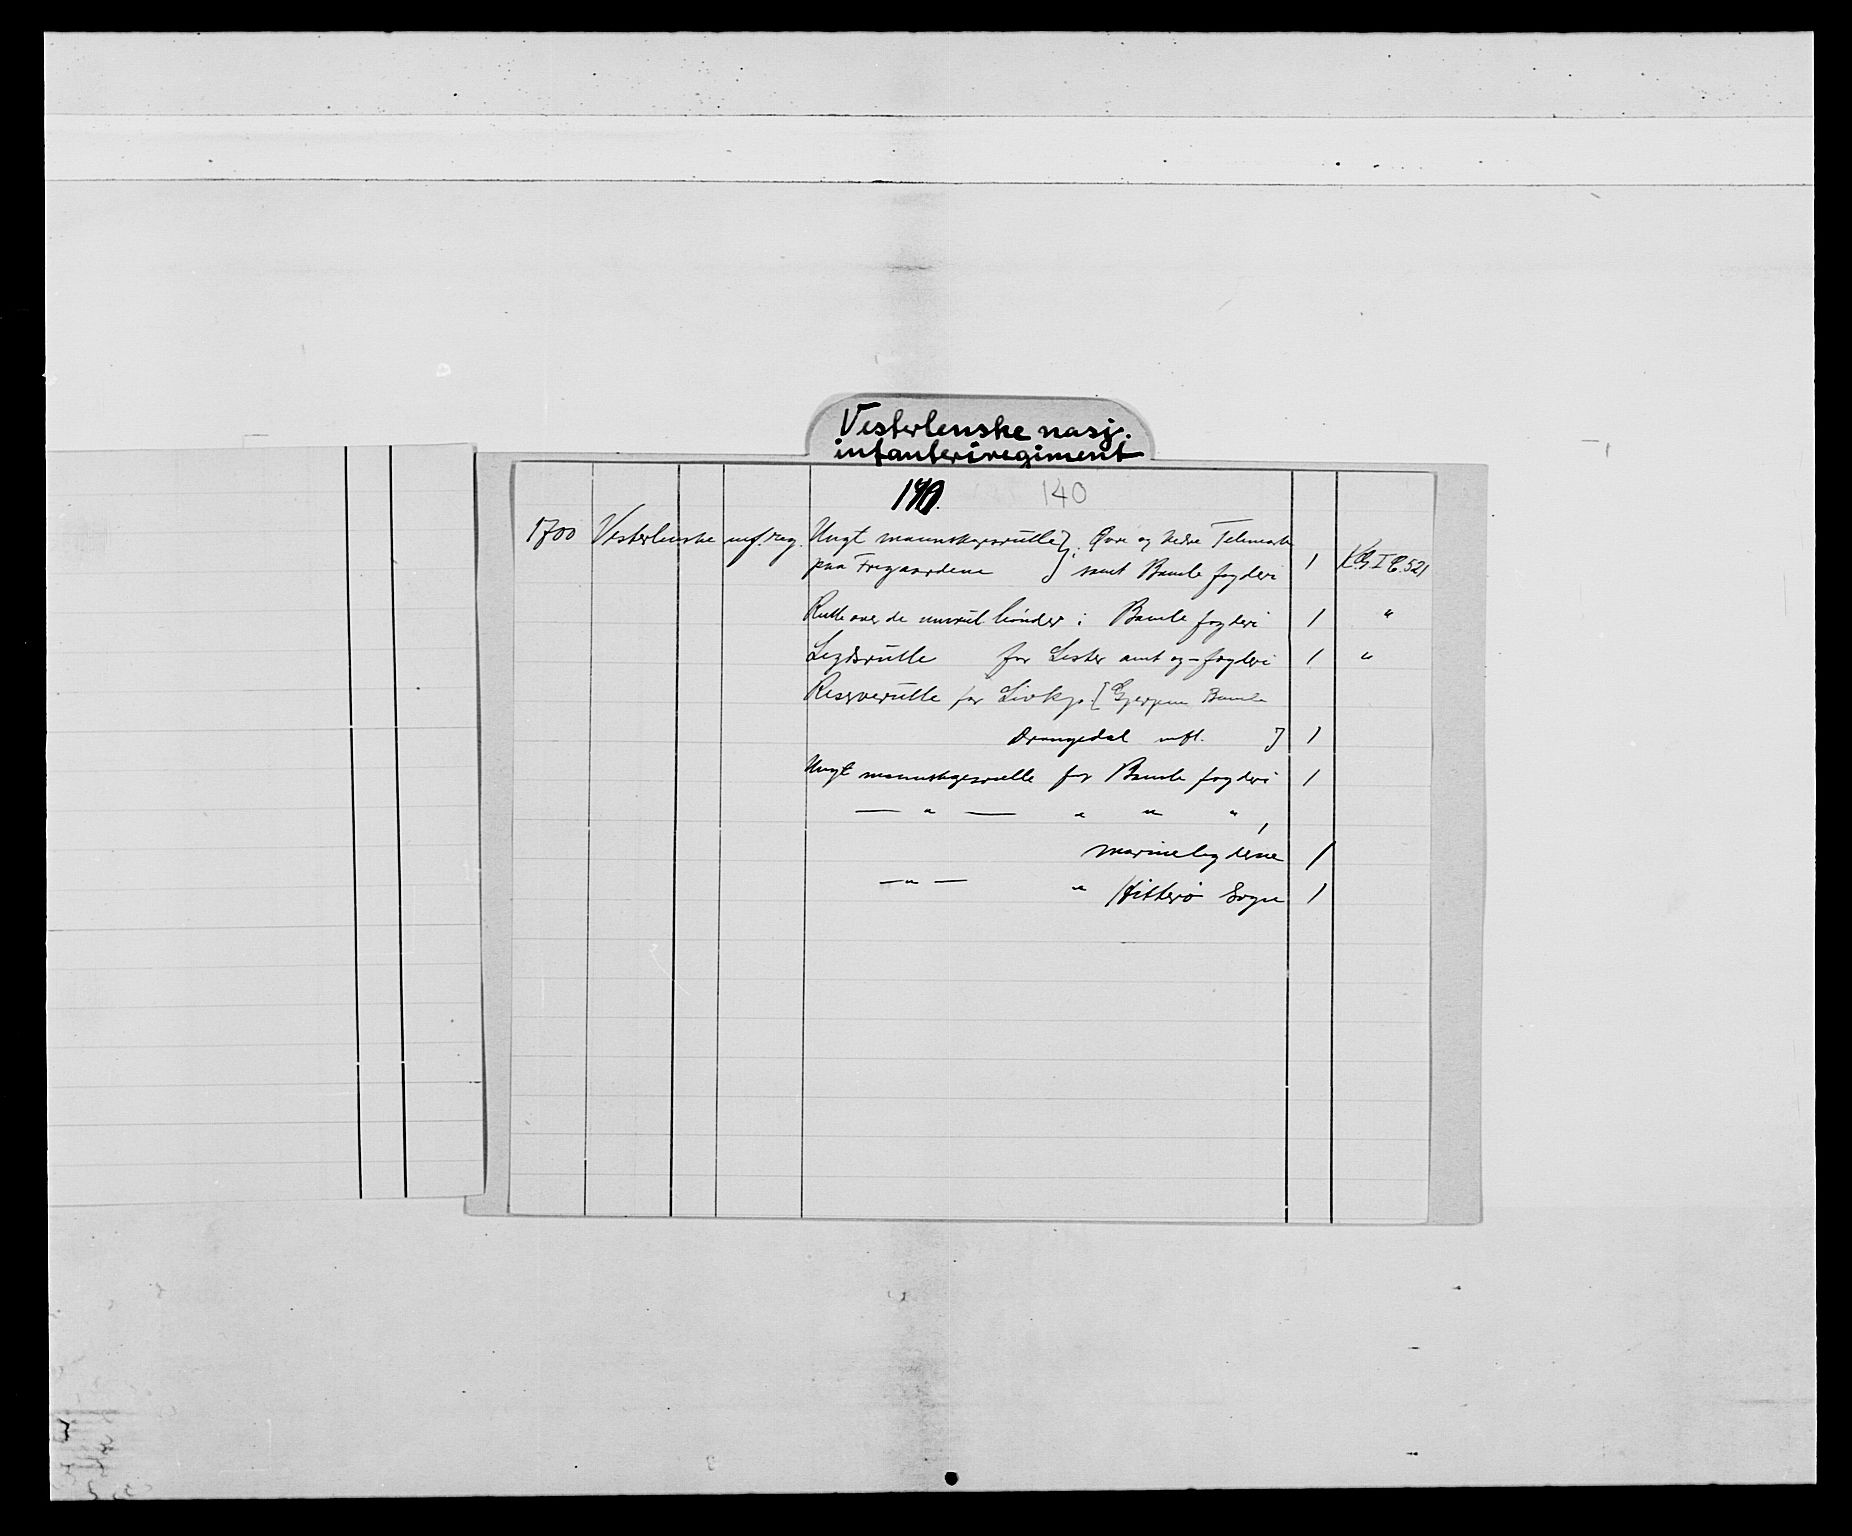 Vesterlenske nasj.
infanteriregiment
140. 140
1700 Vesterlenske inf. reg. Ungt mannskapsrulle } i Øvre og Nedre Telemark
paa Fregaardene } samt Bamle fogderi 1 KG I C. 521
Rulle over de bönder i Bamle fogderi 1 "
Legdsrulle for Lister amt og - fogderi 1 "
Reserverulle for Livkp. [Gjerpen Bamle
Drangedal mfl. ] 1
Ungt mannskapsrulle for Bamle fogderi 1
— " — " " ",
marinelegdene 1
— " — " Hitterö Sogn 1